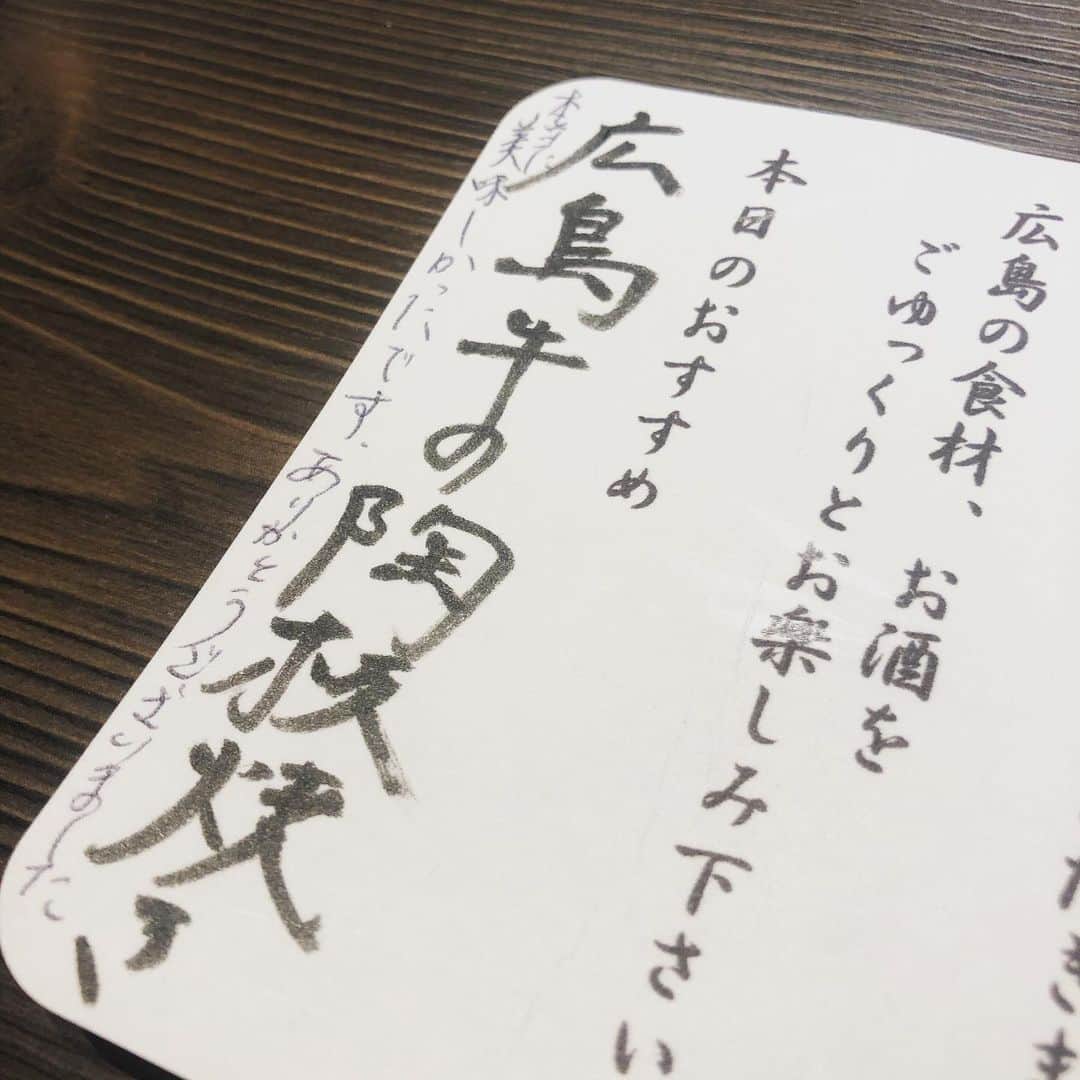 広島の食材、お酒を
ごゆっくりとお楽しみ下さい
本日のおすすめ
広島牛の陶板焼
本当に美味しかったです.ありがとうございました